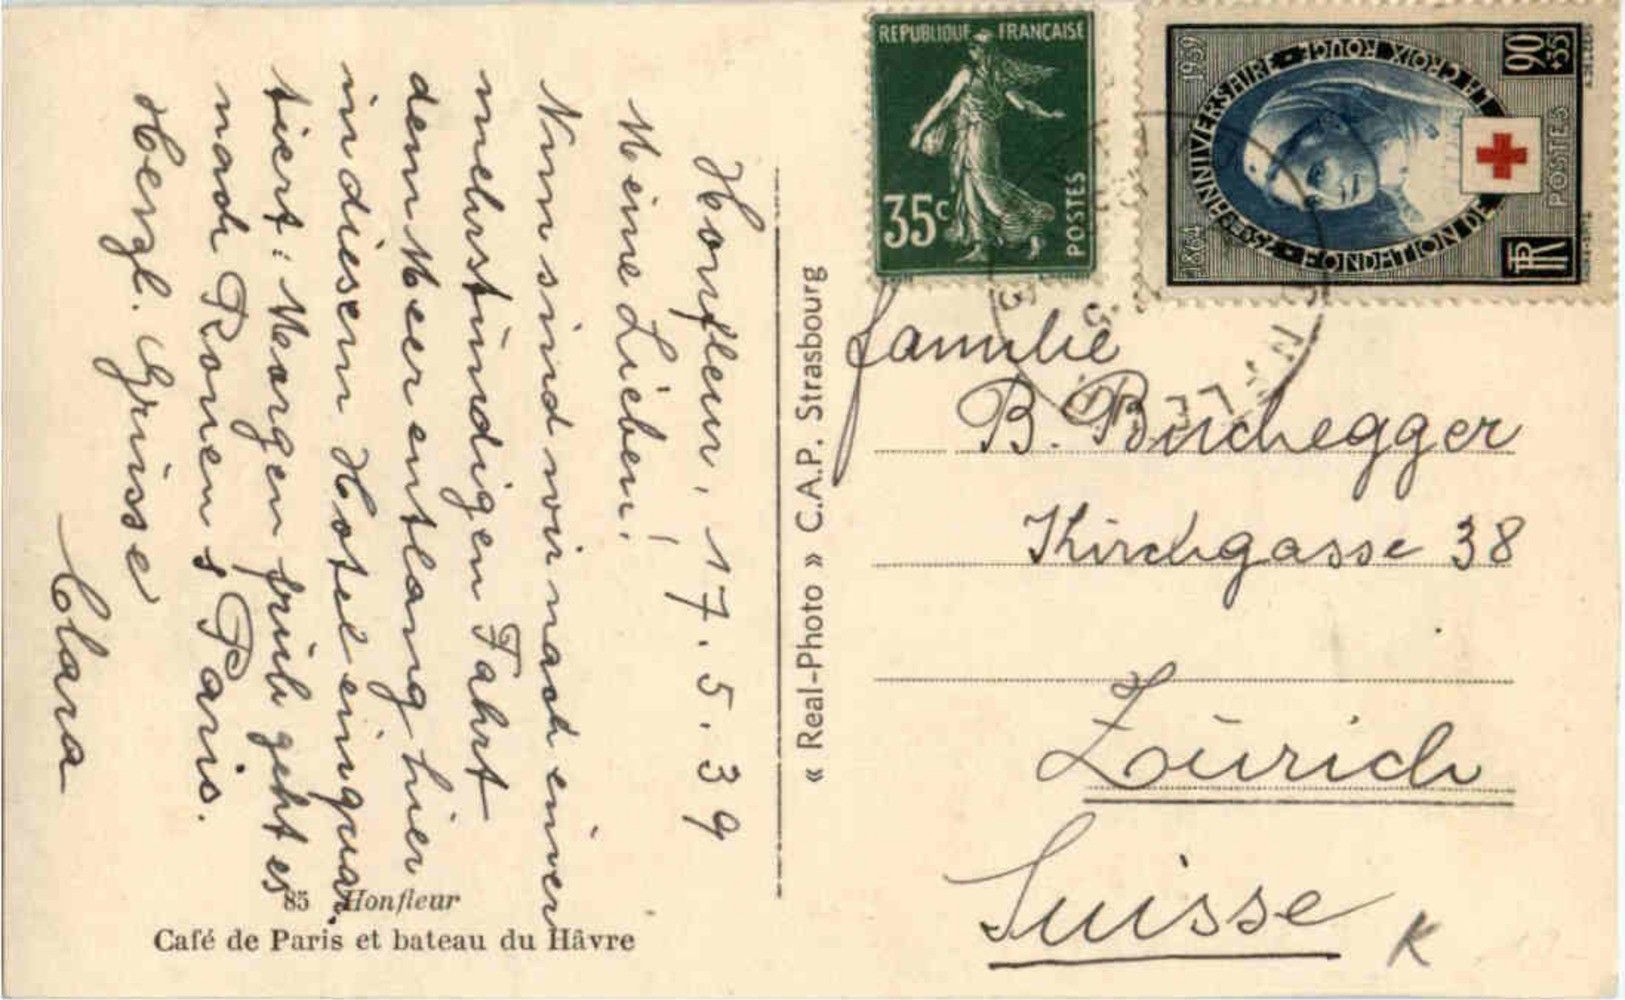 Honfleur, 17. 5. 39
Meine Lieben!
Nun sind wir nach einer
mehrstündigen Fahrt
dem Meer entlang hier
in diesem Hotel einquar-
tiert. Morgen früh geht es
nach Rouen & Paris.
Herzl. Grüsse
Clara
85 Honfleur
Café de Paris et bateau du Hâvre
« Real-Photo » C.A.P. Strasbourg
REPUBLIQUE FRANÇAISE
35c
POSTES
1864 1939
75e ANNIVERSAIRE - FONDATION DE LA CROIX ROUGE
90
+35
POSTES
RF
Familie
B. Buchegger
Kirchgasse 38
Zürich
Suisse
K